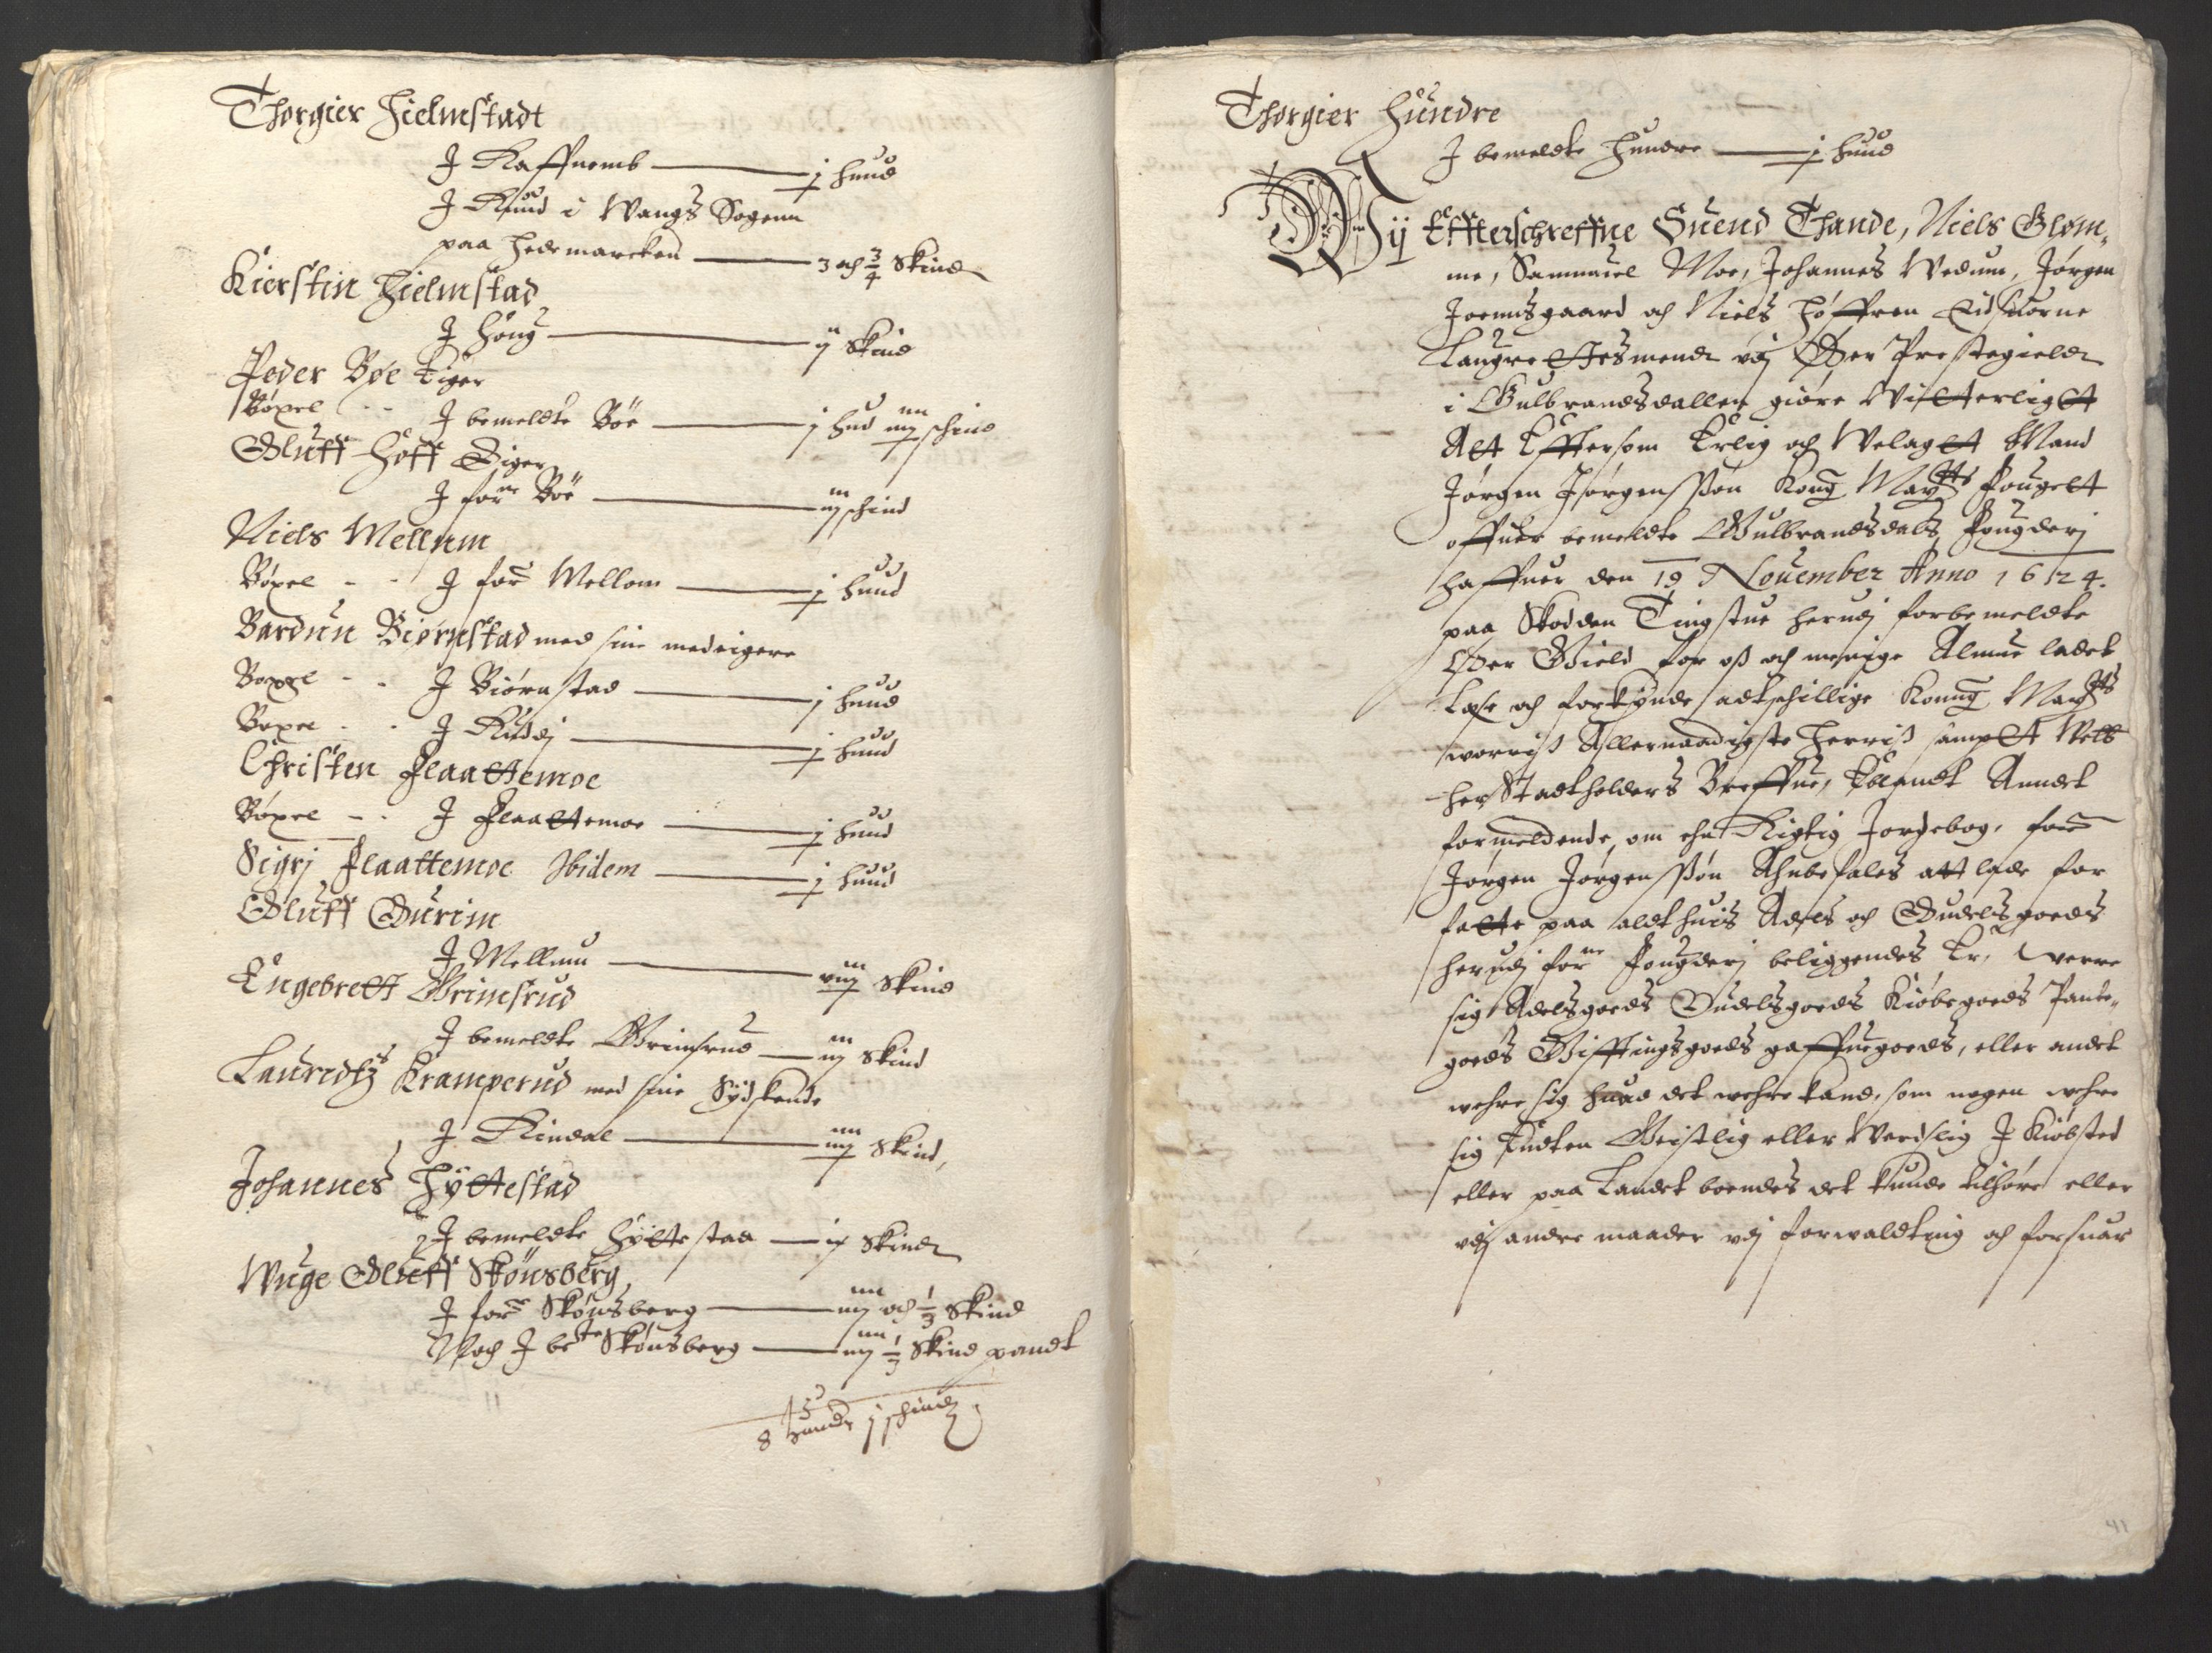 Thorgier Hielmstadt
J Raffnemb —— j huud
J Ruud i Wangs Sogenn
paa Hedemarcken —— 3 och 3/4 Skind
Kierstin Hielmstad
J Houg —— ij Skind
Peder Böe Eiger
Böxel - - J bemeldte Böe —— j hud iiij schind
Oluff Hoff Eiger
J forne Böe —— iij schind
Niels Mellum
Böxel - - J for Mellom —— j huud
Bardun Biørnstad med sine medeigere
Boxel - - J Biörnstad —— j huud
Boxel - - J Rudj —— j huud
Christen Plaattemoe
Böxel - - J Plaattemoe —— j huud
Sigrj Plaattemoe Ibidem —— j huud
Oluff Gurim
J Mellum —— viij Skind
Engebrett Grimsrud
J bemeldte Grimsrud —— iij Skind
Lauridtz Kramperud med sine Sydskende
J Rindal —— iiij Skind,
Johannes Hyttestad
J bemeldte Hyttestad —— ix Skind
Wnge Oluff Skönsberg
J for Skönsberg —— iiij och 1/3 Skind
Noch J bete Skönsberg —— iiij 1/3 Skind pandt
8 huude j schind
Thorgier Hundre
J bemeldte Hundre —— j huud
Wij Effterschreffne Suend Thande, Niels Glom,,
me, Sammuel Moe, Johannes Wedum, Jörgen
Joenusgaard och Niels Höffren Eidsuorne
Laugrettesmend vdj Öÿer Prestegield
i Gulbrandsdallen giöre Witterligtt
Att Effttersom Erlig och Welagtt Mand
Jörgen Jörgenssön Kong Maytts Fougett
offuer bemeldte Gulbrandsdals Fougderj
haffuer den 19 Nouember Anno 1624.
paa Skodden Tingstue herudj forbemeldte
Öÿer Gield for oss och menige Almue ladet
Læse och forkynde adtschillige Konng Maytts
worriss Allernaadigste Herris sampt Welb
her Stadtholders Breffue, Iblandt Andet
formeldende, om ehn Rigtig Jordebog, for
Jörgen Jörgenssön Ahnbefales att lade for
fatte paa aldt huis Adels och Oudels goeds
herudj forne Fougderj beliggendes Er, Werre
sig Adelsgoeds Oudelsgoeds Kiöbegoeds Pante,,
goeds Gifftingsgoeds gaffuegoeds, eller andet
wehre sig huad det wehre kand, som nogen wehre
sig Endten Geistlig eller Werdslig J Kiöbsted
eller paa Landet boendes det kunde tilhöre eller
vdj andre maader vdj forwaldting och forsuar
41